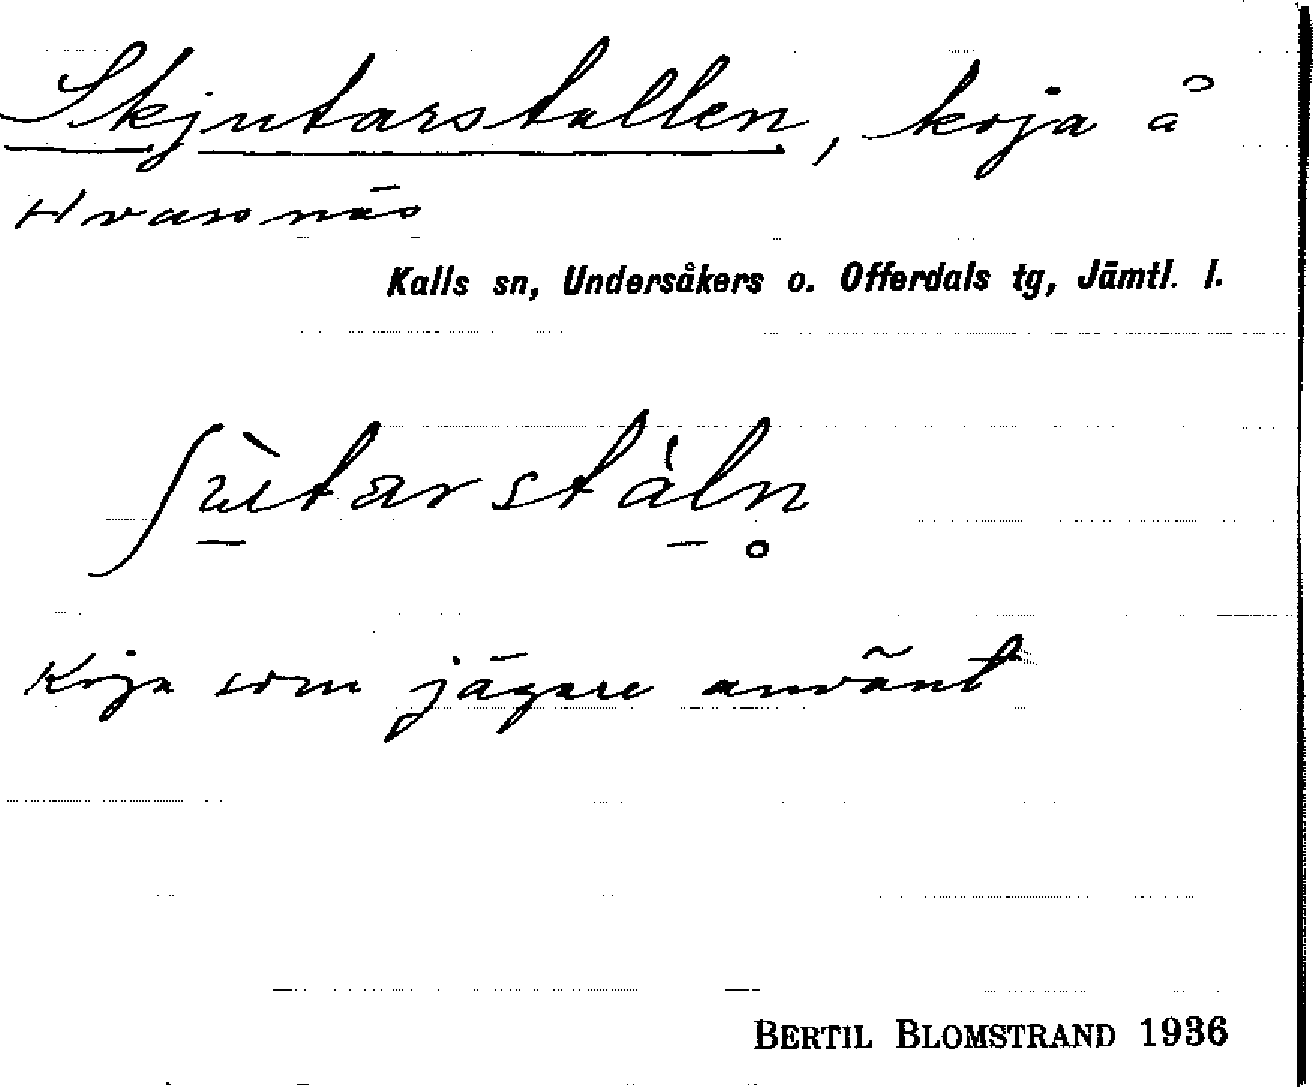 Skjutarstallen, koja å
Hvassnäs
Kalls sn, Undersåkers o. Offerdals tg, Jämtl. l.
ʃùtarstáln̥
Koja som jägare använt
BERTIL BLOMSTRAND 1936